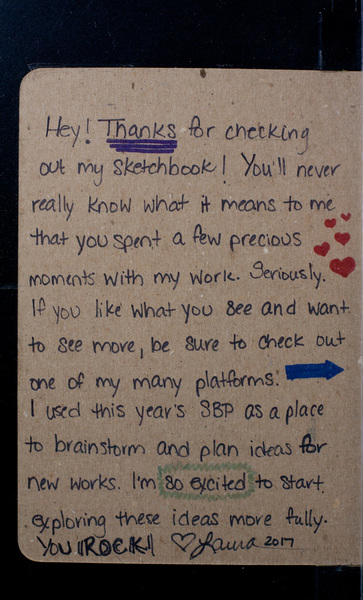 Hey! Thanks for checking
out my sketchbook! You'll never
really know what it means to me
that you spent a few precious
moments with my work. Seriously.
If you like what you see and want
to see more, be sure to check out
one of my many platforms:
I used this year's SBP as a place
to brainstorm and plan ideas for
new works. I'm so excited to start
exploring these ideas more fully.
YOU ROCK! Laura 2017